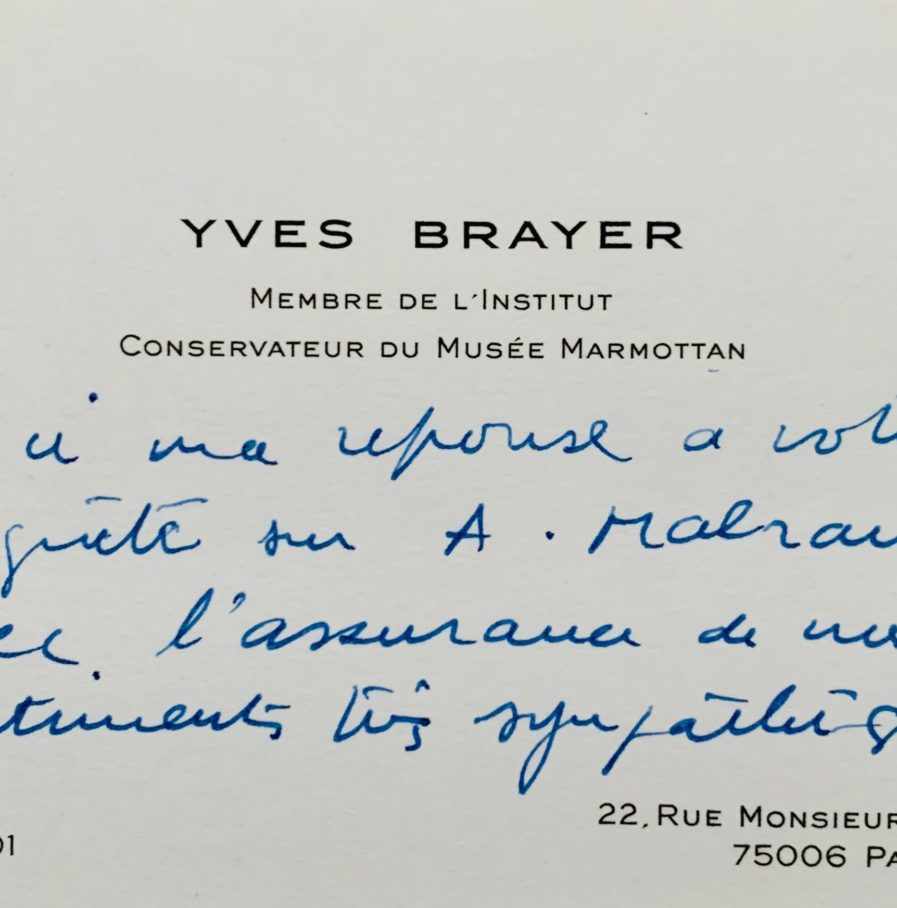 YVES BRAYER
MEMBRE DE L'INSTITUT
CONSERVATEUR DU MUSÉE MARMOTTAN
ci ma reponse a vot
quete sur A. Malrau
ec l'assurance de me
timents très sympathiq
22, RUE MONSIEUR
01
75006 PA